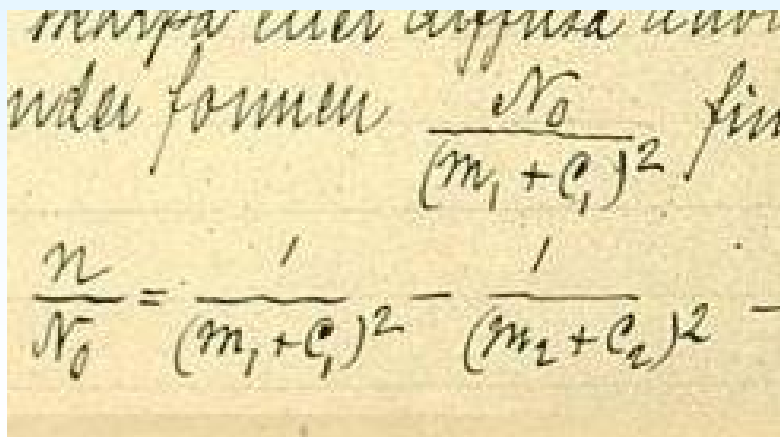 skarpa eller diffusa
under formen N₀/(m₁ + C₁)²
n/N₀ = 1/(m₁+C₁)² − 1/(m₂+C₂)² −